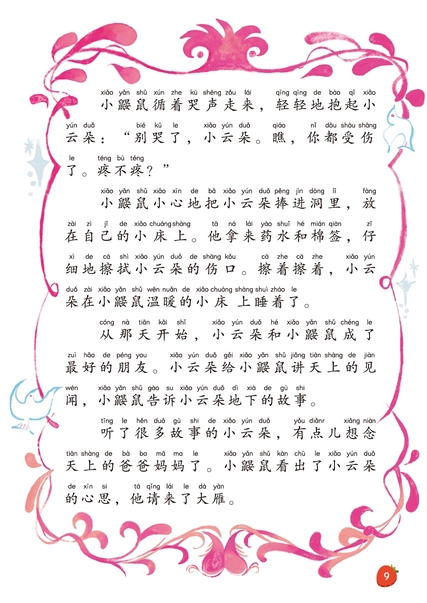 xiǎo yǎn shǔ xún zhe kū shēng zǒu lái qīng qīng de bào qǐ xiǎo
小鼹鼠循着哭声走来，轻轻地抱起小
yún duǒ bié kū le xiǎo yún duǒ qiáo nǐ dōu shòu shāng
云朵：“别哭了，小云朵。瞧，你都受伤
le téng bù téng
了。疼不疼？”
xiǎo yǎn shǔ xiǎo xīn de bǎ xiǎo yún duǒ pěng jìn dòng lǐ fàng
小鼹鼠小心地把小云朵捧进洞里，放
zài zì jǐ de xiǎo chuáng shàng tā ná lái yào shuǐ hé mián qiān zǐ
在自己的小床上。他拿来药水和棉签，仔
xì de cā shì xiǎo yún duǒ de shāng kǒu cā zhe cā zhe xiǎo yún
细地擦拭小云朵的伤口。擦着擦着，小云
duǒ zài xiǎo yǎn shǔ wēn nuǎn de xiǎo chuáng shàng shuì zháo le
朵在小鼹鼠温暖的小床上睡着了。
cóng nà tiān kāi shǐ xiǎo yún duǒ hé xiǎo yǎn shǔ chéng le
从那天开始，小云朵和小鼹鼠成了
zuì hǎo de péng you xiǎo yún duǒ gěi xiǎo yǎn shǔ jiǎng tiān shàng de jiàn
最好的朋友。小云朵给小鼹鼠讲天上的见
wén xiǎo yǎn shǔ gào su xiǎo yún duǒ dì xià de gù shi
闻，小鼹鼠告诉小云朵地下的故事。
tīng le hěn duō gù shi de xiǎo yún duǒ yǒu diǎnr xiǎng niàn
听了很多故事的小云朵，有点儿想念
tiān shàng de bà ba mā ma le xiǎo yǎn shǔ kàn chū le xiǎo yún duǒ
天上的爸爸妈妈了。小鼹鼠看出了小云朵
de xīn si tā qǐng lái le dà yàn
的心思，他请来了大雁。
9